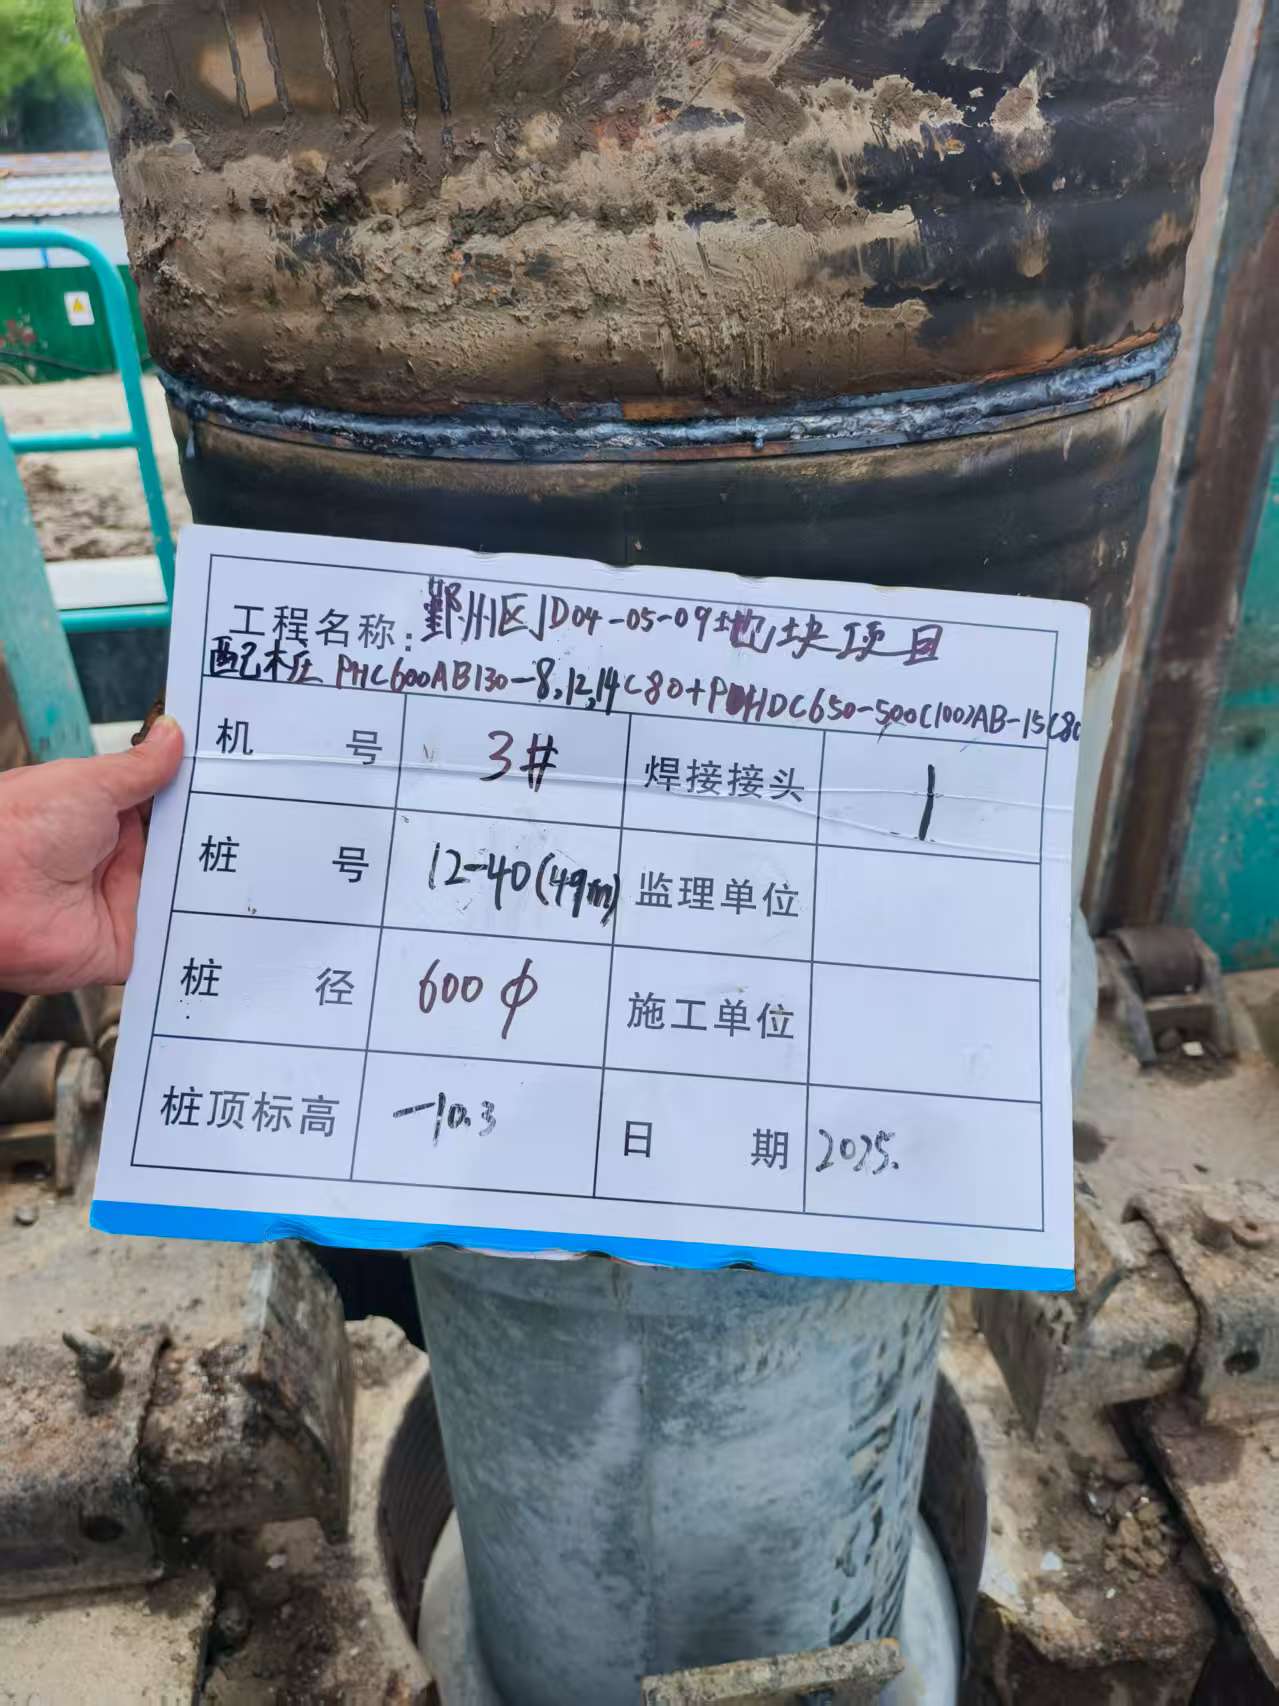 工程名称:鄞州区JD04-05-09地块项目
配桩 PHC600AB130-8,12,14C80+PHDC650-500(100)AB-15C80
机号 3# 焊接接头 1
桩号 12-40(49m) 监理单位
桩径 600φ 施工单位
桩顶标高 -10.3 日期 2025.